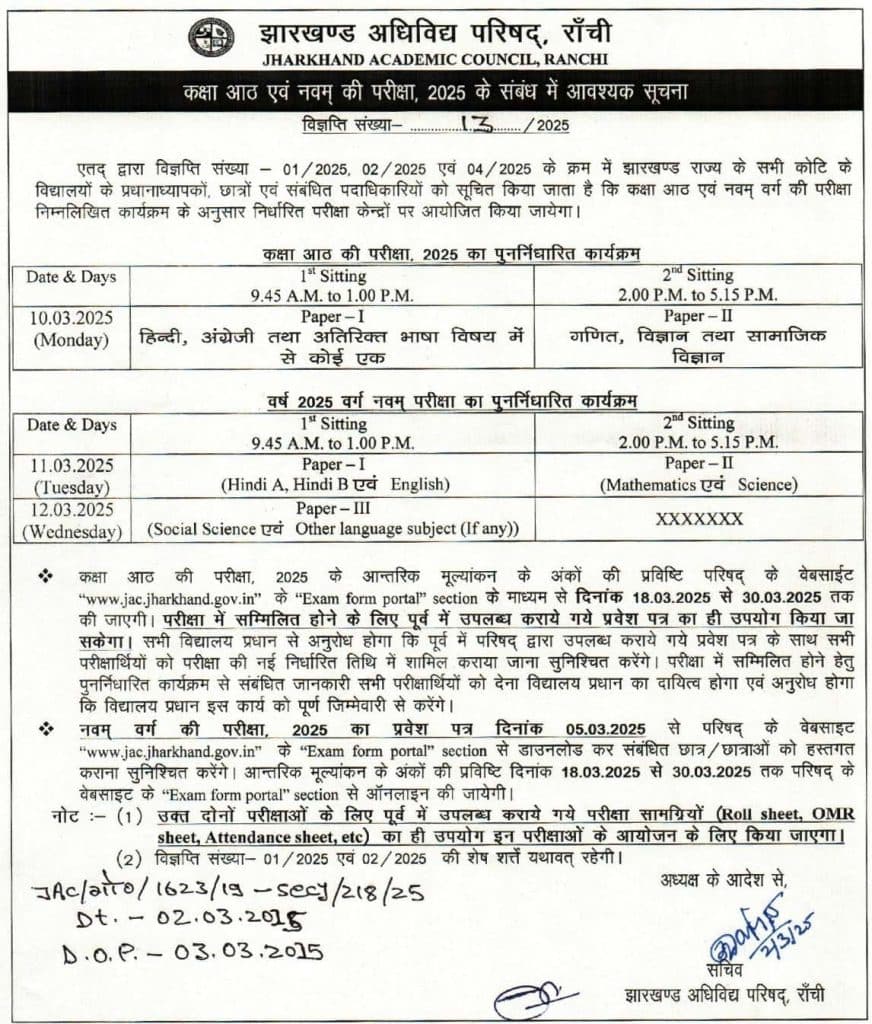 झारखण्ड अधिविद्य परिषद्, राँची
JHARKHAND ACADEMIC COUNCIL, RANCHI
कक्षा आठ एवं नवम् की परीक्षा, 2025 के संबंध में आवश्यक सूचना
विज्ञप्ति संख्या– ..................13......../2025
एतद् द्वारा विज्ञप्ति संख्या – 01/2025, 02/2025 एवं 04/2025 के क्रम में झारखण्ड राज्य के सभी कोटि के
विद्यालयों के प्रधानाध्यापकों, छात्रों एवं संबंधित पदाधिकारियों को सूचित किया जाता है कि कक्षा आठ एवं नवम् वर्ग की परीक्षा
निम्नलिखित कार्यक्रम के अनुसार निर्धारित परीक्षा केन्द्रों पर आयोजित किया जायेगा।
कक्षा आठ की परीक्षा, 2025 का पुनर्निधारित कार्यक्रम
Date & Days 1st Sitting 2nd Sitting
9.45 A.M. to 1.00 P.M. 2.00 P.M. to 5.15 P.M.
10.03.2025 Paper – I Paper – II
(Monday) हिन्दी, अंग्रेजी तथा अतिरिक्त भाषा विषय में गणित, विज्ञान तथा सामाजिक
से कोई एक विज्ञान
वर्ष 2025 वर्ग नवम् परीक्षा का पुनर्निधारित कार्यक्रम
Date & Days 1st Sitting 2nd Sitting
9.45 A.M. to 1.00 P.M. 2.00 P.M. to 5.15 P.M.
11.03.2025 Paper – I Paper – II
(Tuesday) (Hindi A, Hindi B एवं English) (Mathematics एवं Science)
12.03.2025 Paper – III XXXXXXX
(Wednesday) (Social Science एवं Other language subject (If any))
❖ कक्षा आठ की परीक्षा, 2025 के आन्तरिक मूल्यांकन के अंकों की प्रविष्टि परिषद् के वेबसाईट
“www.jac.jharkhand.gov.in” के “Exam form portal” section के माध्यम से दिनांक 18.03.2025 से 30.03.2025 तक
की जाएगी। परीक्षा में सम्मिलित होने के लिए पूर्व में उपलब्ध कराये गये प्रवेश पत्र का ही उपयोग किया जा
सकेगा। सभी विद्यालय प्रधान से अनुरोध होगा कि पूर्व में परिषद् द्वारा उपलब्ध कराये गये प्रवेश पत्र के साथ सभी
परीक्षार्थियों को परीक्षा की नई निर्धारित तिथि में शामिल कराया जाना सुनिश्चित करेंगे। परीक्षा में सम्मिलित होने हेतु
पुनर्निधारित कार्यक्रम से संबंधित जानकारी सभी परीक्षार्थियों को देना विद्यालय प्रधान का दायित्व होगा एवं अनुरोध होगा
कि विद्यालय प्रधान इस कार्य को पूर्ण जिम्मेवारी से करेंगे।
❖ नवम् वर्ग की परीक्षा, 2025 का प्रवेश पत्र दिनांक 05.03.2025 से परिषद् के वेबसाइट
“www.jac.jharkhand.gov.in” के “Exam form portal” section से डाउनलोड कर संबंधित छात्र/छात्राओं को हस्तगत
कराना सुनिश्चित करेंगे। आन्तरिक मूल्यांकन के अंकों की प्रविष्टि दिनांक 18.03.2025 से 30.03.2025 तक परिषद् के
वेबसाइट के “Exam form portal” section से ऑनलाइन की जायेगी।
नोट :– (1) उक्त दोनों परीक्षाओं के लिए पूर्व में उपलब्ध कराये गये परीक्षा सामग्रियों (Roll sheet, OMR
sheet, Attendance sheet, etc) का ही उपयोग इन परीक्षाओं के आयोजन के लिए किया जाएगा।
(2) विज्ञप्ति संख्या– 01/2025 एवं 02/2025 की शेष शर्त्तें यथावत् रहेगी।
अध्यक्ष के आदेश से,
JAC/गो०/1623/19 – Secy/218/25
Dt. – 02.03.2015
D.O.P. – 03.03.2015
2/3/25
सचिव
झारखण्ड अधिविद्य परिषद्, राँची